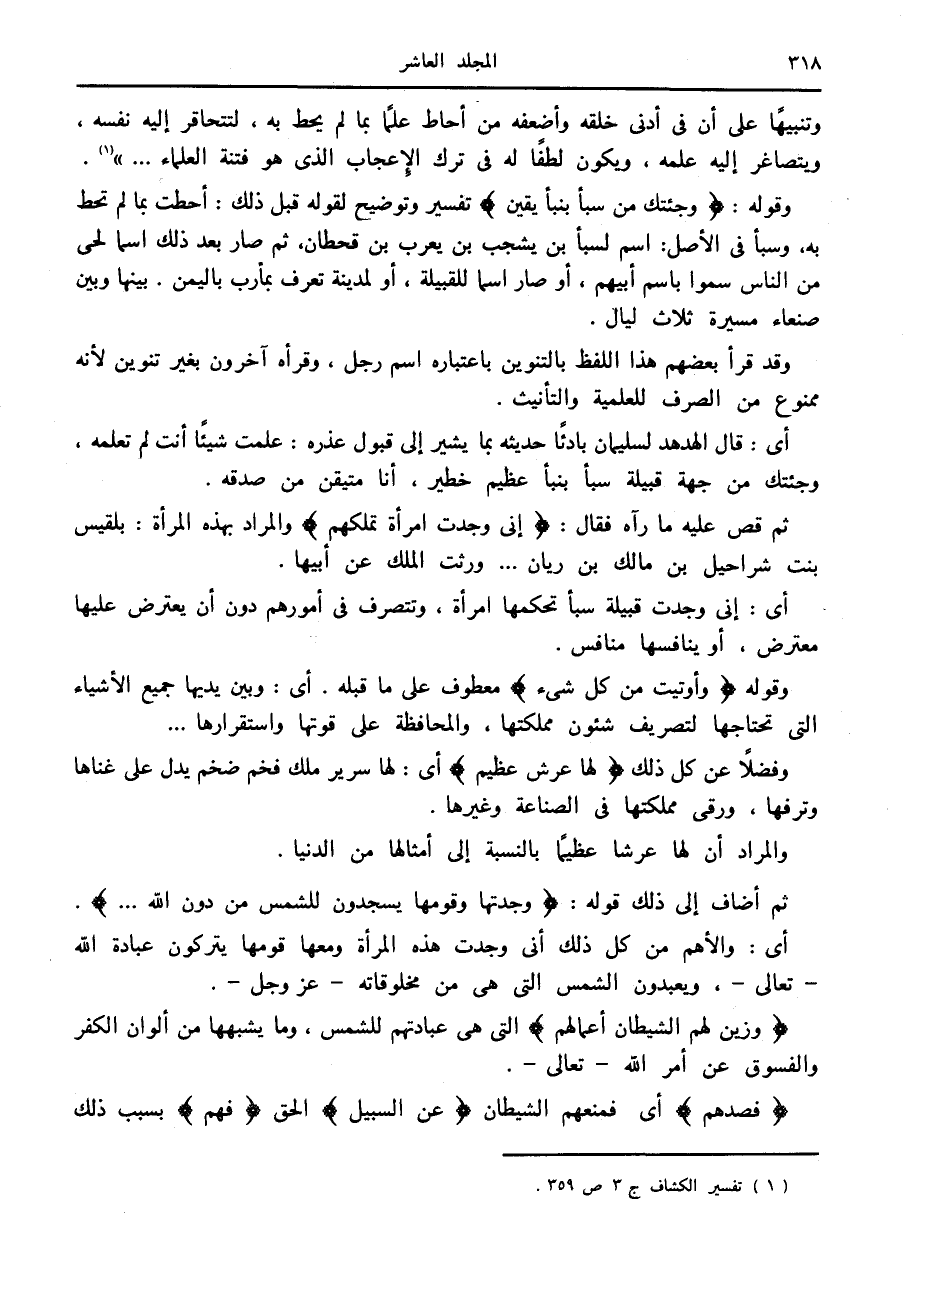 ٣١٨
المجلد العاشر
وتنبيهًا على أن فى أدنى خلقه وأضعفه من أحاط علمًا بما لم يحط به ، لتتحاقر إليه نفسه ،
ويتصاغر إليه علمه ، ويكون لطفًا له فى ترك الإعجاب الذى هو فتنة العلماء ... »(١) .
وقوله : ﴿ وجئتك من سبأ بنبأ يقين ﴾ تفسير وتوضيح لقوله قبل ذلك : أحطت بما لم تحط
به، وسبأ فى الأصل: اسم لسبأ بن يشجب بن يعرب بن قحطان، ثم صار بعد ذلك اسما لحى
من الناس سموا باسم أبيهم ، أو صار اسما للقبيلة ، أو لمدينة تعرف بمأرب باليمن . بينها وبين
صنعاء مسيرة ثلاث ليال .
وقد قرأ بعضهم هذا اللفظ بالتنوين باعتباره اسم رجل ، وقرأه آخرون بغير تنوين لأنه
ممنوع من الصرف للعلمية والتأنيث .
أى : قال الهدهد لسليمان بادئًا حديثه بما يشير إلى قبول عذره : علمت شيئًا أنت لم تعلمه ،
وجئتك من جهة قبيلة سبأ بنبأ عظيم خطير ، أنا متيقن من صدقه .
ثم قص عليه ما رآه فقال : ﴿ إنى وجدت امرأة تملكهم ﴾ والمراد بهذه المرأة : بلقيس
بنت شراحيل بن مالك بن ريان ... ورثت الملك عن أبيها .
أى : إنى وجدت قبيلة سبأ تحكمها امرأة ، وتتصرف فى أمورهم دون أن يعترض عليها
معترض ، أو ينافسها منافس .
وقوله ﴿ وأوتيت من كل شىء ﴾ معطوف على ما قبله . أى : وبين يديها جميع الأشياء
التى تحتاجها لتصريف شئون مملكتها ، والمحافظة على قوتها واستقرارها ...
وفضلًا عن كل ذلك ﴿ لها عرش عظيم ﴾ أى : لها سرير ملك فخم ضخم يدل على غناها
وترفها ، ورقى مملكتها فى الصناعة وغيرها .
والمراد أن لها عرشا عظيمًا بالنسبة إلى أمثالها من الدنيا .
ثم أضاف إلى ذلك قوله : ﴿ وجدتها وقومها يسجدون للشمس من دون الله ... ﴾ .
أى : والأهم من كل ذلك أنى وجدت هذه المرأة ومعها قومها يتركون عبادة الله
– تعالى – ، ويعبدون الشمس التى هى من مخلوقاته – عز وجل – .
﴿ وزين لهم الشيطان أعمالهم ﴾ التى هى عبادتهم للشمس ، وما يشبهها من ألوان الكفر
والفسوق عن أمر الله – تعالى – .
﴿ فصدهم ﴾ أى فمنعهم الشيطان ﴿ عن السبيل ﴾ الحق ﴿ فهم ﴾ بسبب ذلك
( ١ ) تفسير الكشاف ج ٣ ص ٣٥٩ .